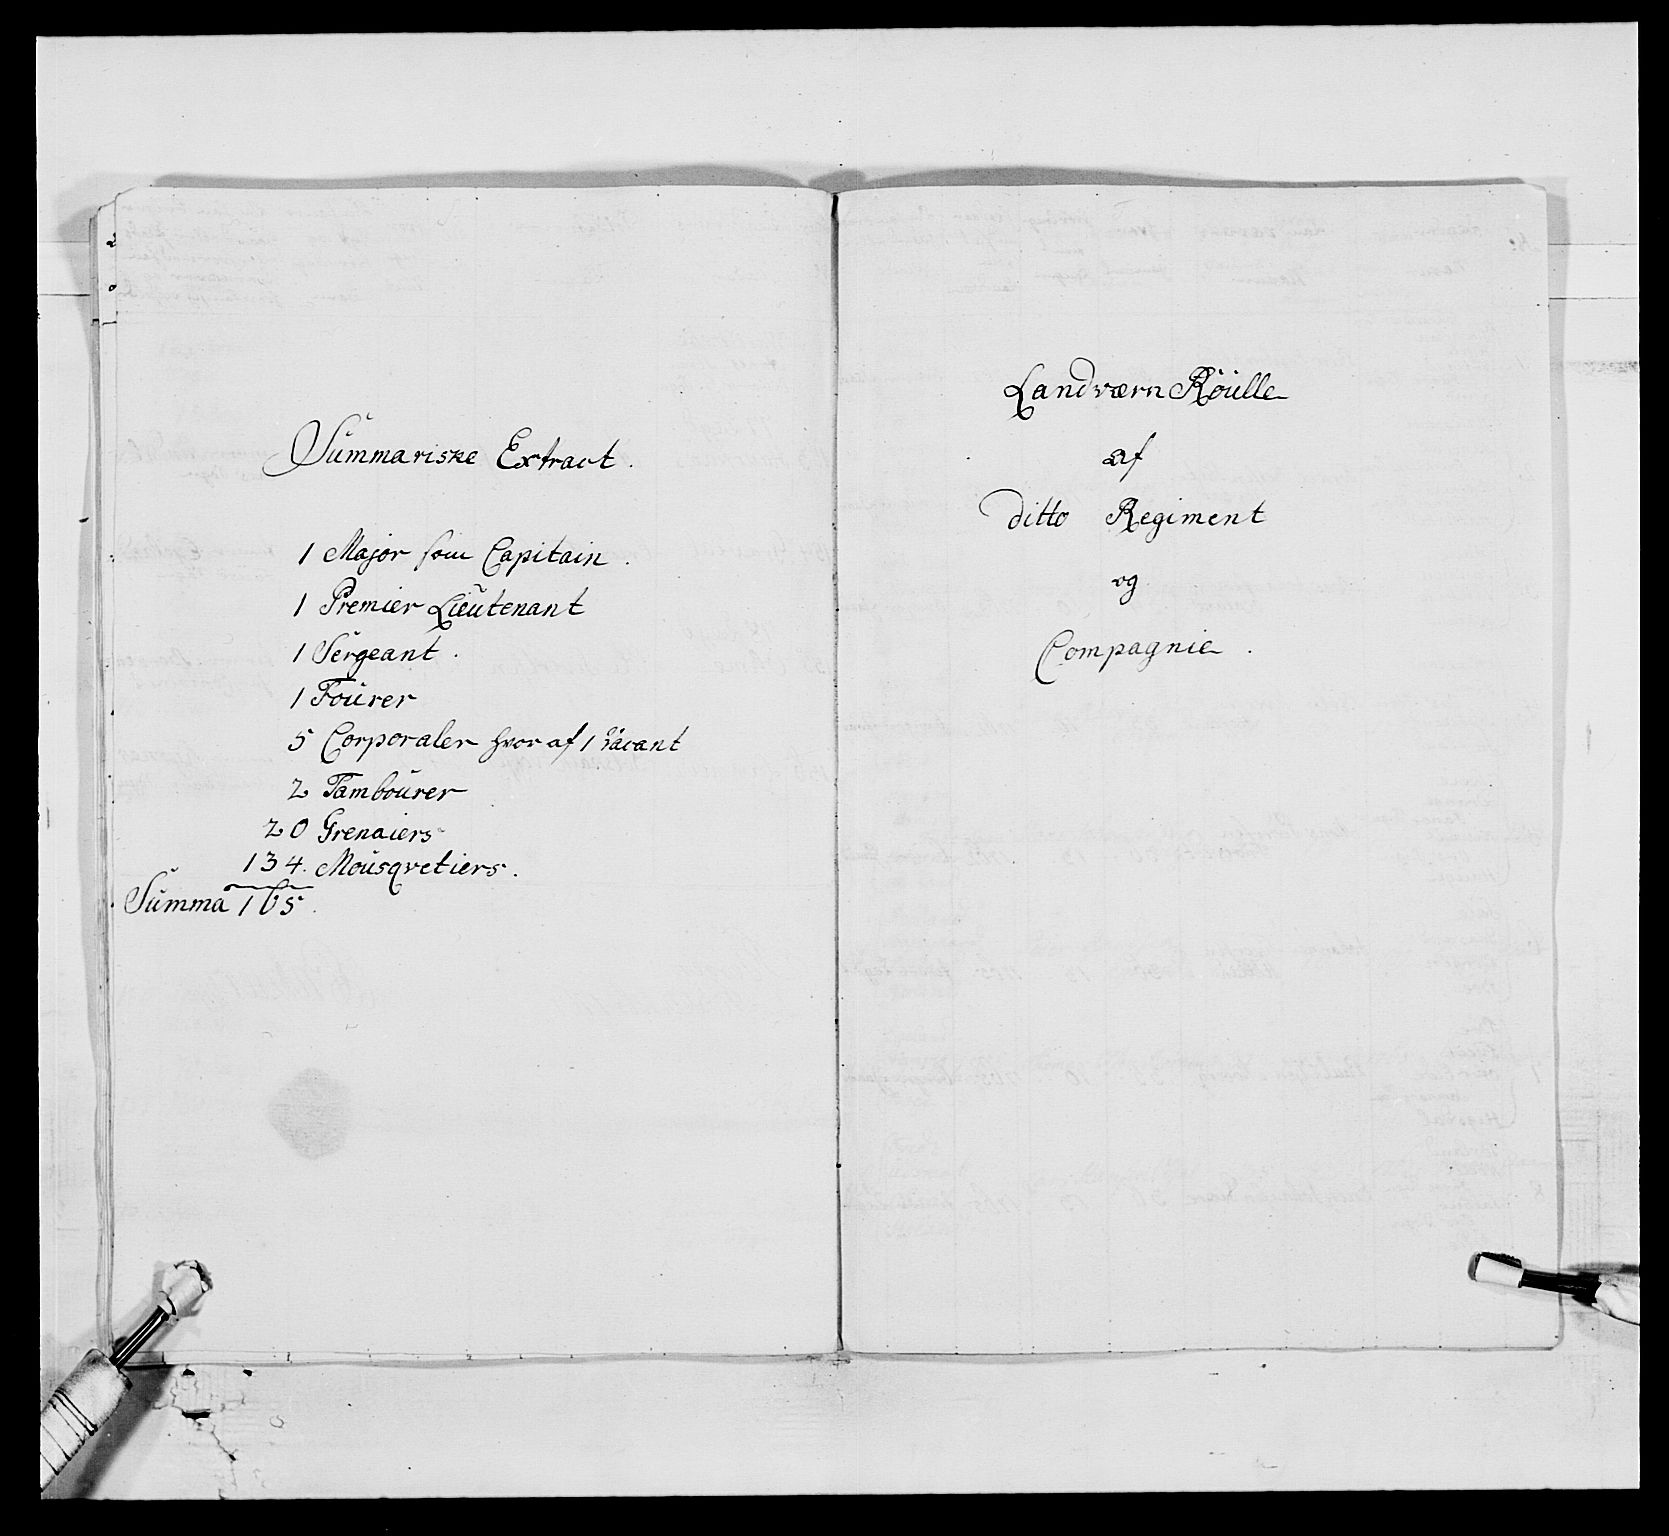 Summariske Extract.
1 Major som Capitain.
1 Premier Lieutenant
1 Sergeant.
1 Fourer
5 Corporaler hvor af 1 vacant
2 Tambourer
20 Grenaiers
134. Mousqvetiers.
Summa 165.
Landværn Roulle
af
ditto Regiment
og
Compagnie.